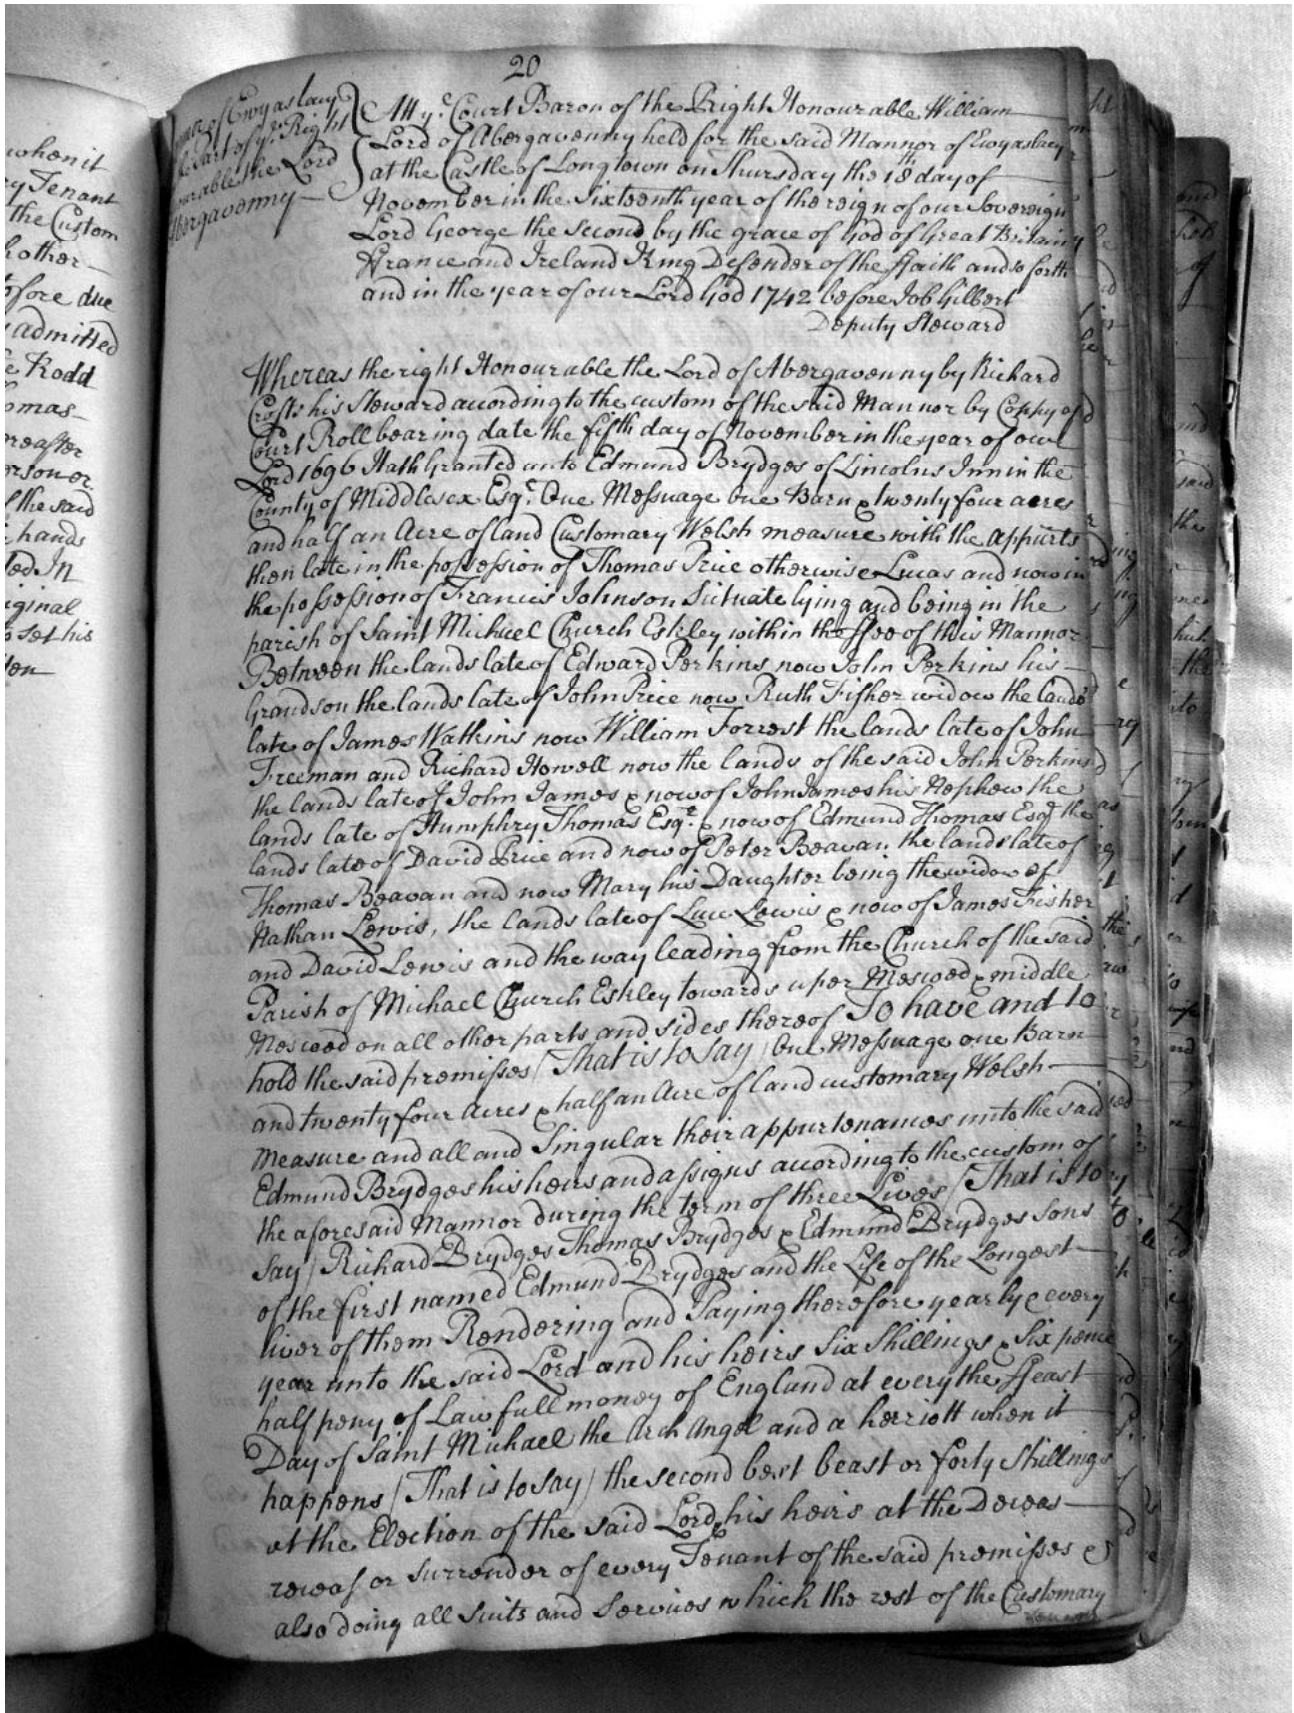 when it
ry Tenant
the Custom
h other
tofore due
admitted
Rodd
homas
hereafter
person or
the said
hands
ted In
riginal
set his
20
of Ewyas lacy
part of ye. Right
ourable the Lord
Abergavenny
Att ye. Court Baron of the Right Honourable William
Lord of Abergavenny held for the said Mannor of Ewyaslacy
at the Castle of Longtown on Thursday the 18th day of
November in the Sixteenth year of the reign of our Sovereign
Lord George the second by the grace of God of Great Britain
France and Ireland King Defender of the ffaith and so forth
and in the year of our Lord God 1742 before Job Gilbert
Deputy Steward
Whereas the right Honourable the Lord of Abergavenny by Richard
Crofts his Steward according to the custom of the said Mannor by Cophy of
Court Roll bearing date the fifth day of November in the year of our
Lord 1696 Hath Granted unto Edmund Brydges of Lincolns Inn in the
County of Middlesex Esqr. One Messuage one Barn & twenty four acres
and half an Acre of land Customary Welsh measure with the appurts
then late in the possession of Thomas Price otherwise Lucas and now in
the possession of Francis Johnson Sictuate lying and being in the
parish of Saint Michael Church Eskley within the ffee of this Mannor
Between the lands late of Edward Perkins now John Perkins his
Grandson the lands late of John Price now Ruth Fisher widow the lands
late of James Watkins now William Forrest the lands late of John
Freeman and Richard Howell now the lands of the said John Perkins
the lands late of John James & now of John James his Nephew the
lands late of Humphry Thomas Esqr. & now of Edmund Thomas Esqr the
lands late of David Price and now of Peter Beavan the lands late of
Thomas Beavan and now Mary his Daughter being the widow of
Nathan Lewis, the lands late of Luce Lewis & now of James Fisher
and David Lewis and the way leading from the Church of the said
Parish of Michael Church Eskley towards uper Mescoed & middle
Mescoed on all other parts and sides thereof To have and to
hold the said premisses (That is to Say) One Messuage one Barn
and twenty four acres & half an Acre of land customary Welsh
measure and all and Singular their appurtenances unto the said
Edmund Brydges his heirs and assigns according to the custom of
the aforesaid Mannor during the term of three Lives (That is to
Say) Richard Brydges Thomas Brydges & Edmund Brydges Sons
of the first named Edmund Brydges and the Life of the Longest
liver of them Rendering and Paying therefore yearly & every
year unto the said Lord and his heirs Six Shillings & Six pence
half peny of Lawfull money of England at every the ffeast
Day of Saint Michael the Arch Angel and a herriott when it
happens (That is to Say) the second best beast or forty Shillings
at the Election of the said Lord his heirs at the Deceas
receas or surrender of every Tenant of the said premisses &
also doing all Suits and Services which the rest of the Customary